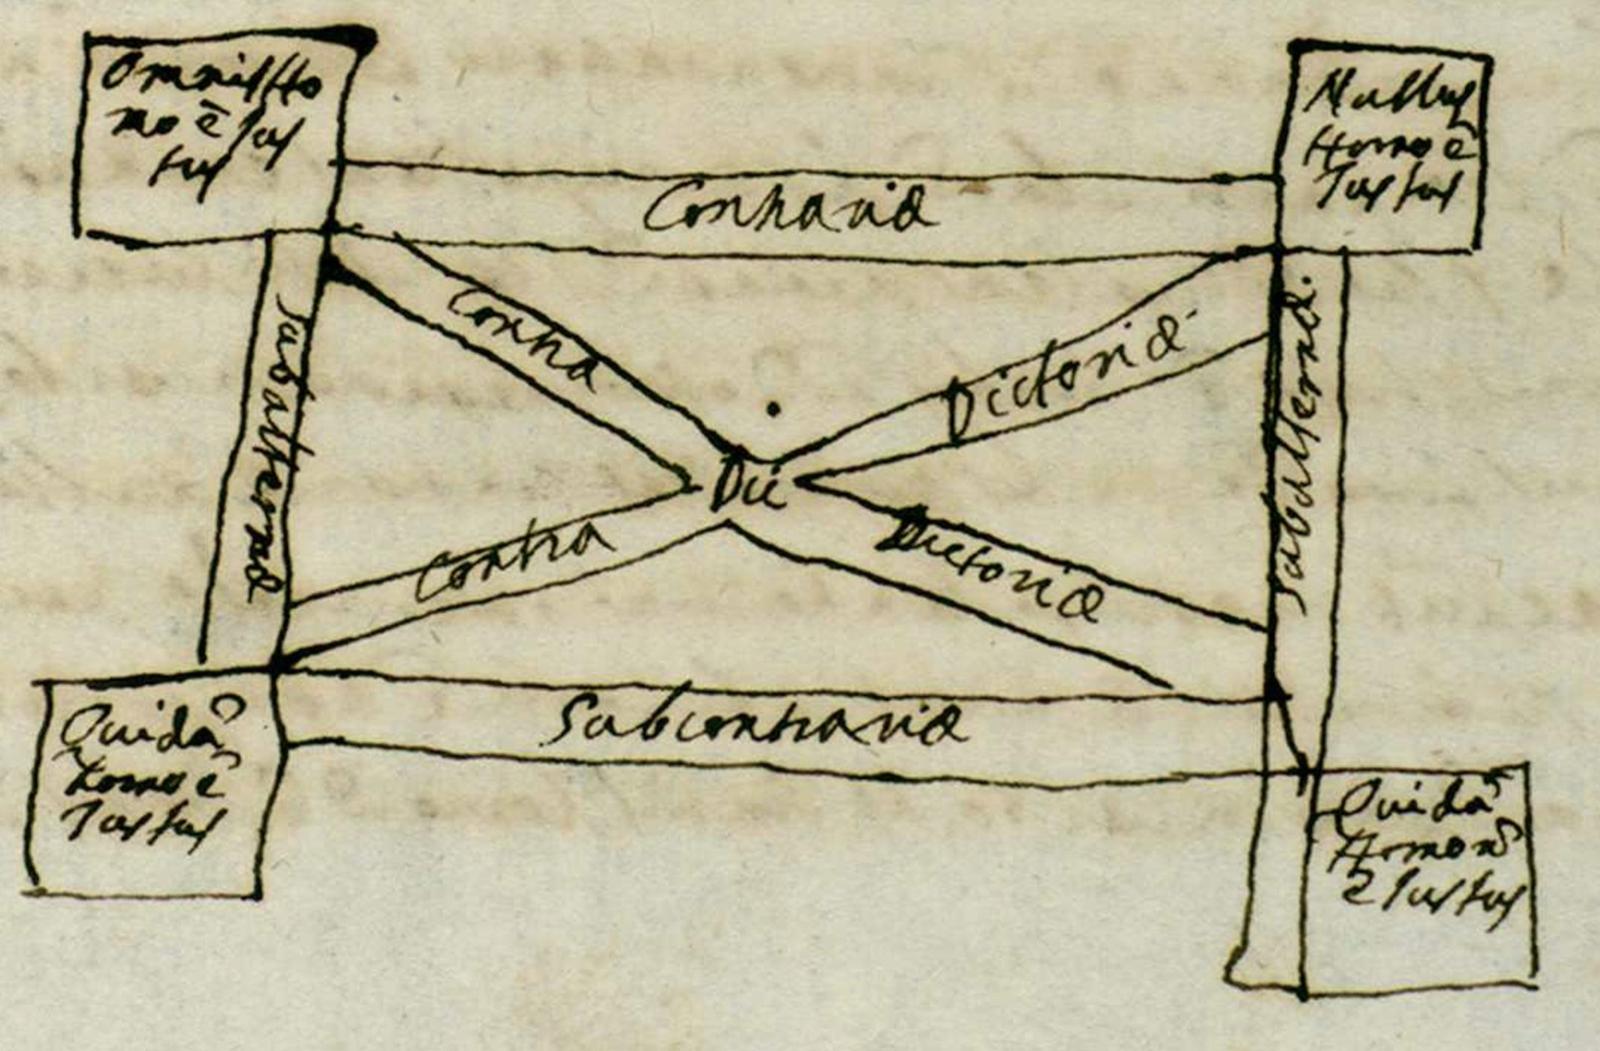 Omnis Ho
mo ē Jus
tus
Nullus
Homo ē
Justus
Contrariæ
Contra
Dictoriæ
Subalternæ
Subalternæ.
Dic
Contra
Dictoriæ
Subcontrariæ
Quidā
homo ē
Justus
Quidā
Homo nō
ē Justus